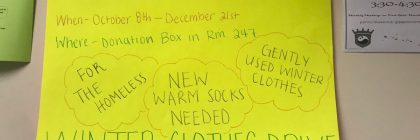 When - October 8th - December 21st
Where - Donation Box in Rm. 247
FOR
THE
HOMELESS
NEW
WARM SOCKS
NEEDED
GENTLY
USED WINTER
CLOTHES
WINTER CLOTHES DRIVE
3:30-4:30